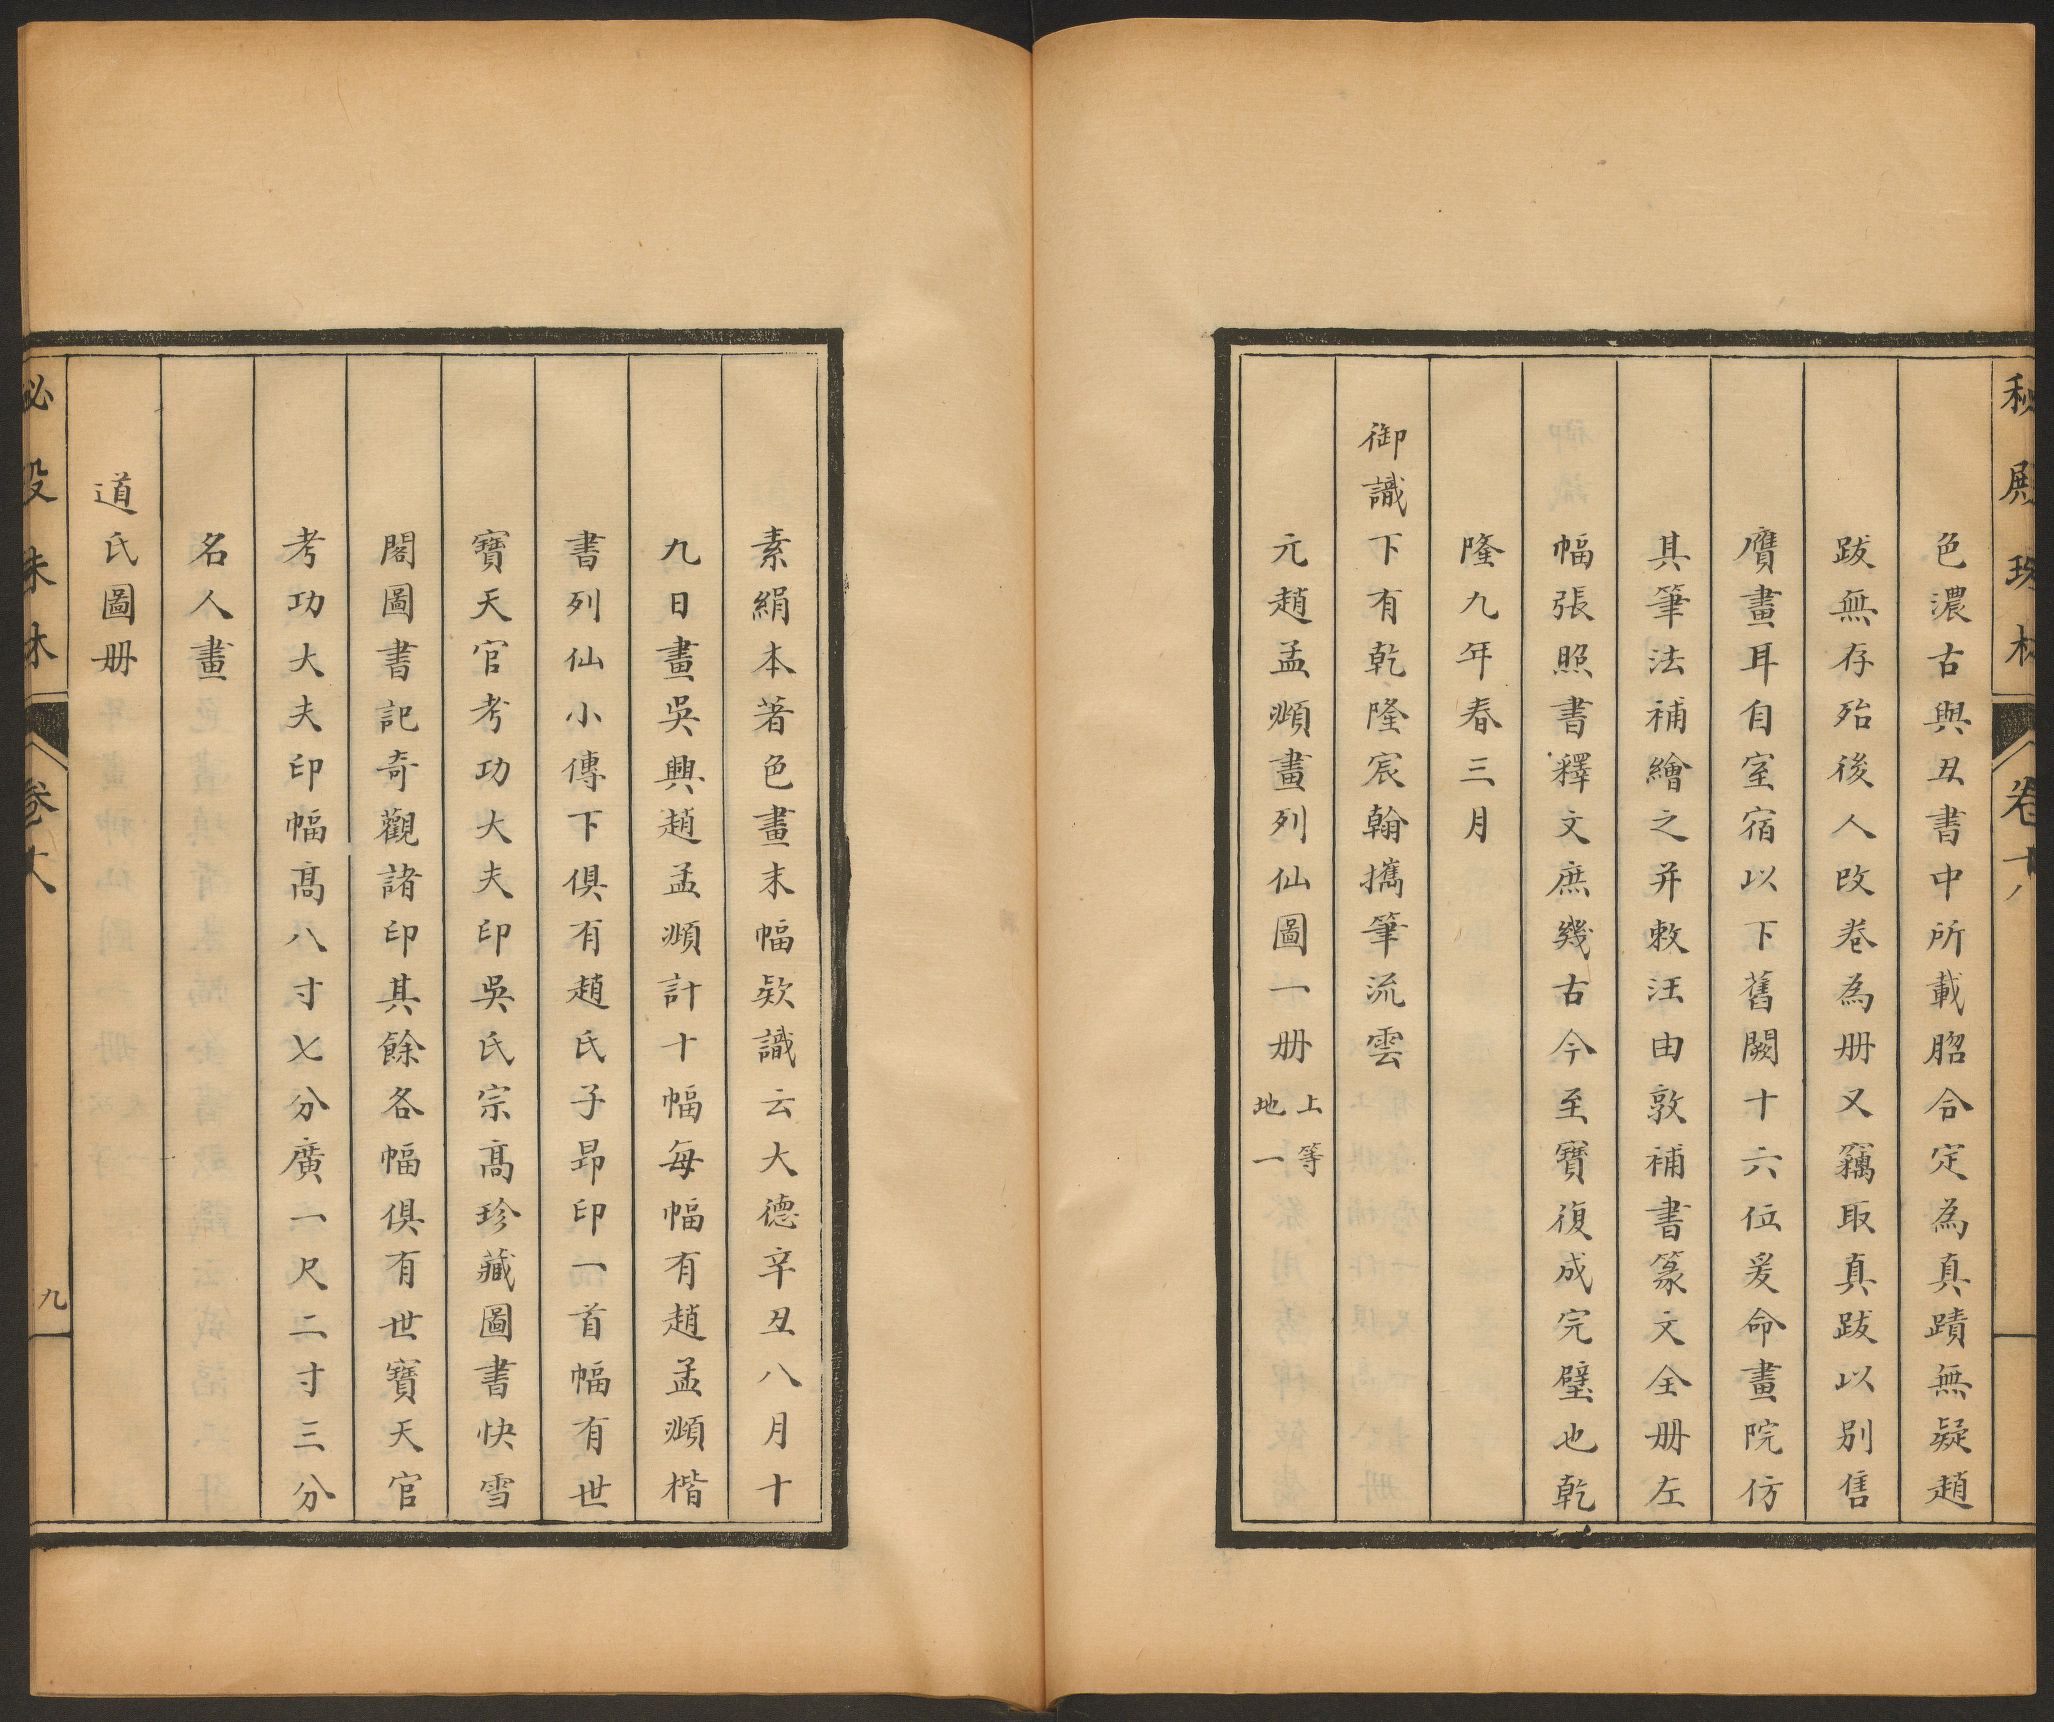 秘殿珠林 卷十八
色濃古與丑書中所載脗合定為真蹟無疑趙
跋無存殆後人改卷為册又竊取真跋以別售
贋畫耳自室宿以下舊闕十六位爰命畫院仿
其筆法補繪之并敕汪由敦補書篆文全册左
幅張照書釋文庶幾古今至寶復成完璧也乾
隆九年春三月
御識下有乾隆宸翰攜筆流雲
元趙孟頫畫列仙圖一册 上等 地一
素絹本著色畫末幅欵識云大德辛丑八月十
九日畫吳興趙孟頫計十幅每幅有趙孟頫楷
書列仙小傳下俱有趙氏子昂印一首幅有世
寶天官考功大夫印吳氏宗高珍藏圖書快雪
閣圖書記奇觀諸印其餘各幅俱有世寶天官
考功大夫印幅高八寸七分廣一尺二寸三分
名人畫
道氏圖册
九